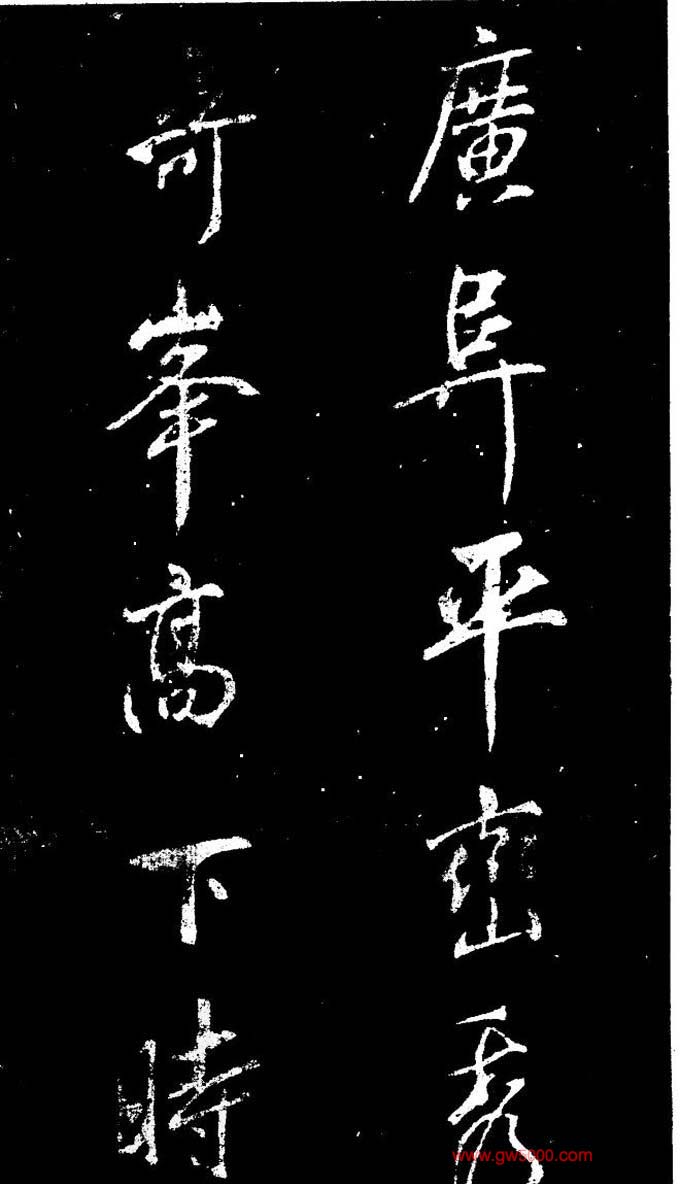 廣阜平巒秀
奇峯高下時
www.gw5000.com